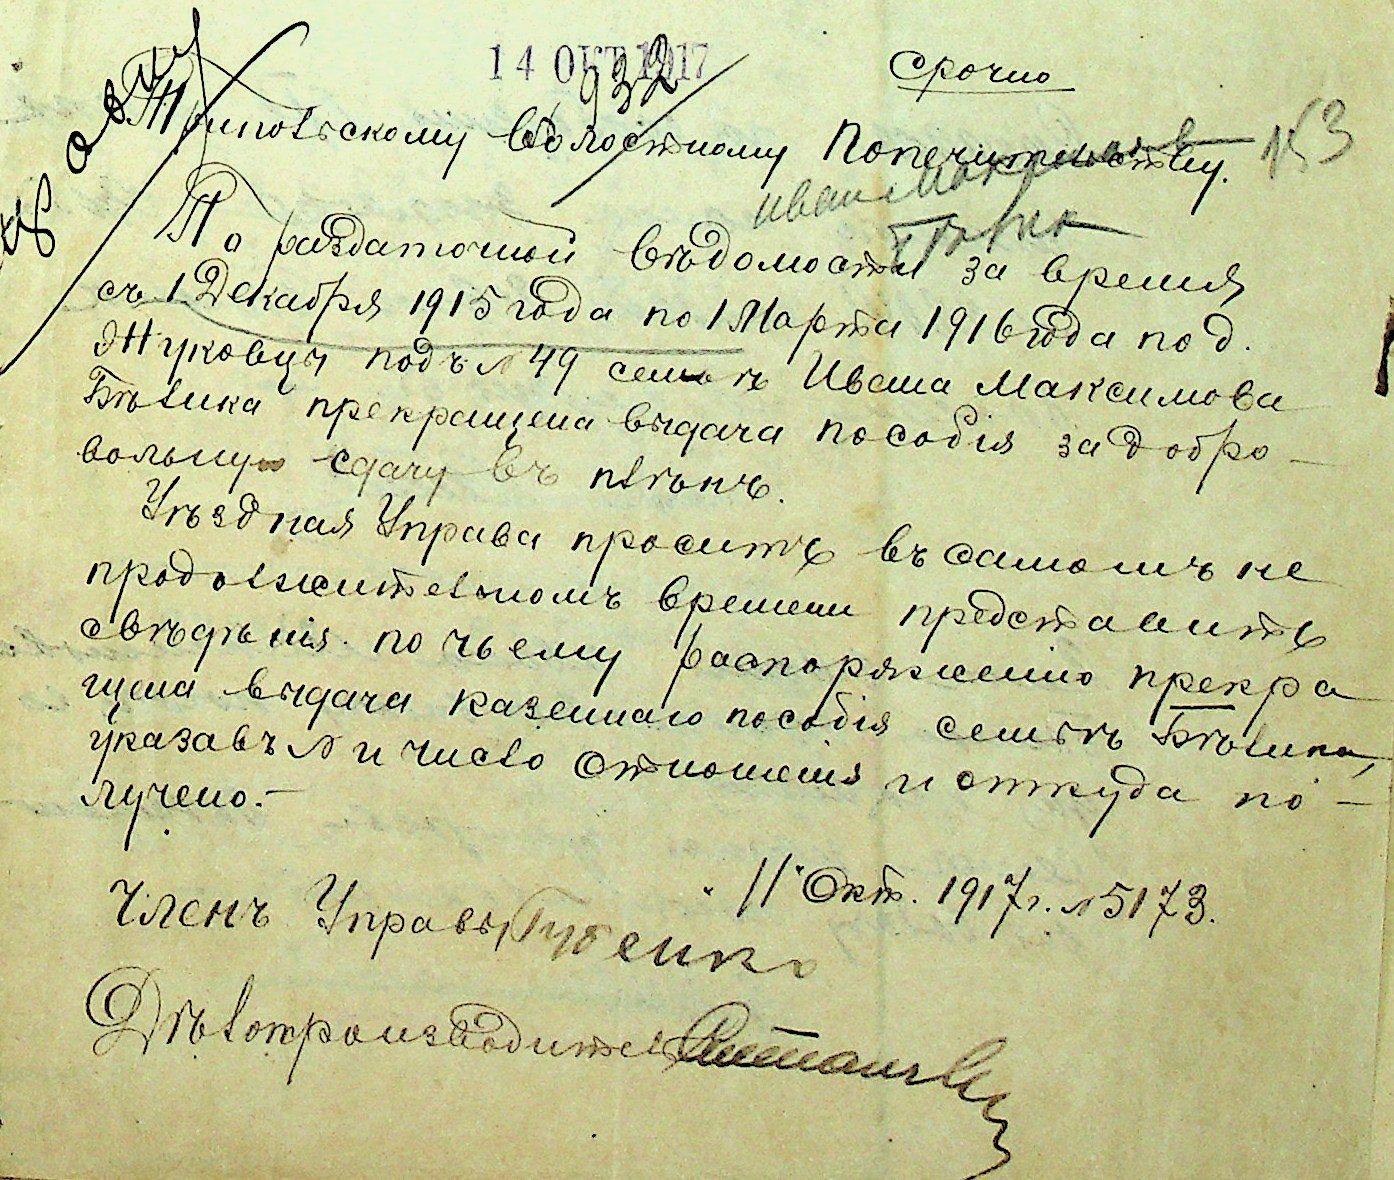 14 ОКТ 1917
932
Срочно
Трипольскому Волостному Попечительству.
№ 53
Иван Максимов
По раздаточной вѣдомости за время
съ 1 Декабря 1915 года по 1 Марта 1916 года по д.
Жуковцы подъ № 49 семьѣ Ивана Максимова
Бѣлика прекращена выдача пособія за добро-
вольную сдачу въ плѣнъ.
Уѣздная Управа проситъ въ самомъ не
продолжительномъ времени представить
свѣдѣнія по чьему распоряженію прекра
щена выдача казеннаго пособія семьѣ Бѣлика,
указавъ № и число отношенія и откуда по-
лучено.-
"11" Окт. 1917 г. № 5173.
Членъ Управы Губенко
Дѣлопроизводитель